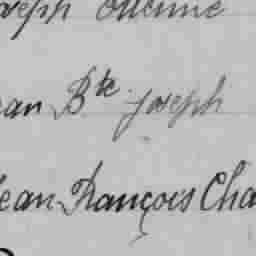 oseph Etienne
ean Bte Joseph
Jean François Cha